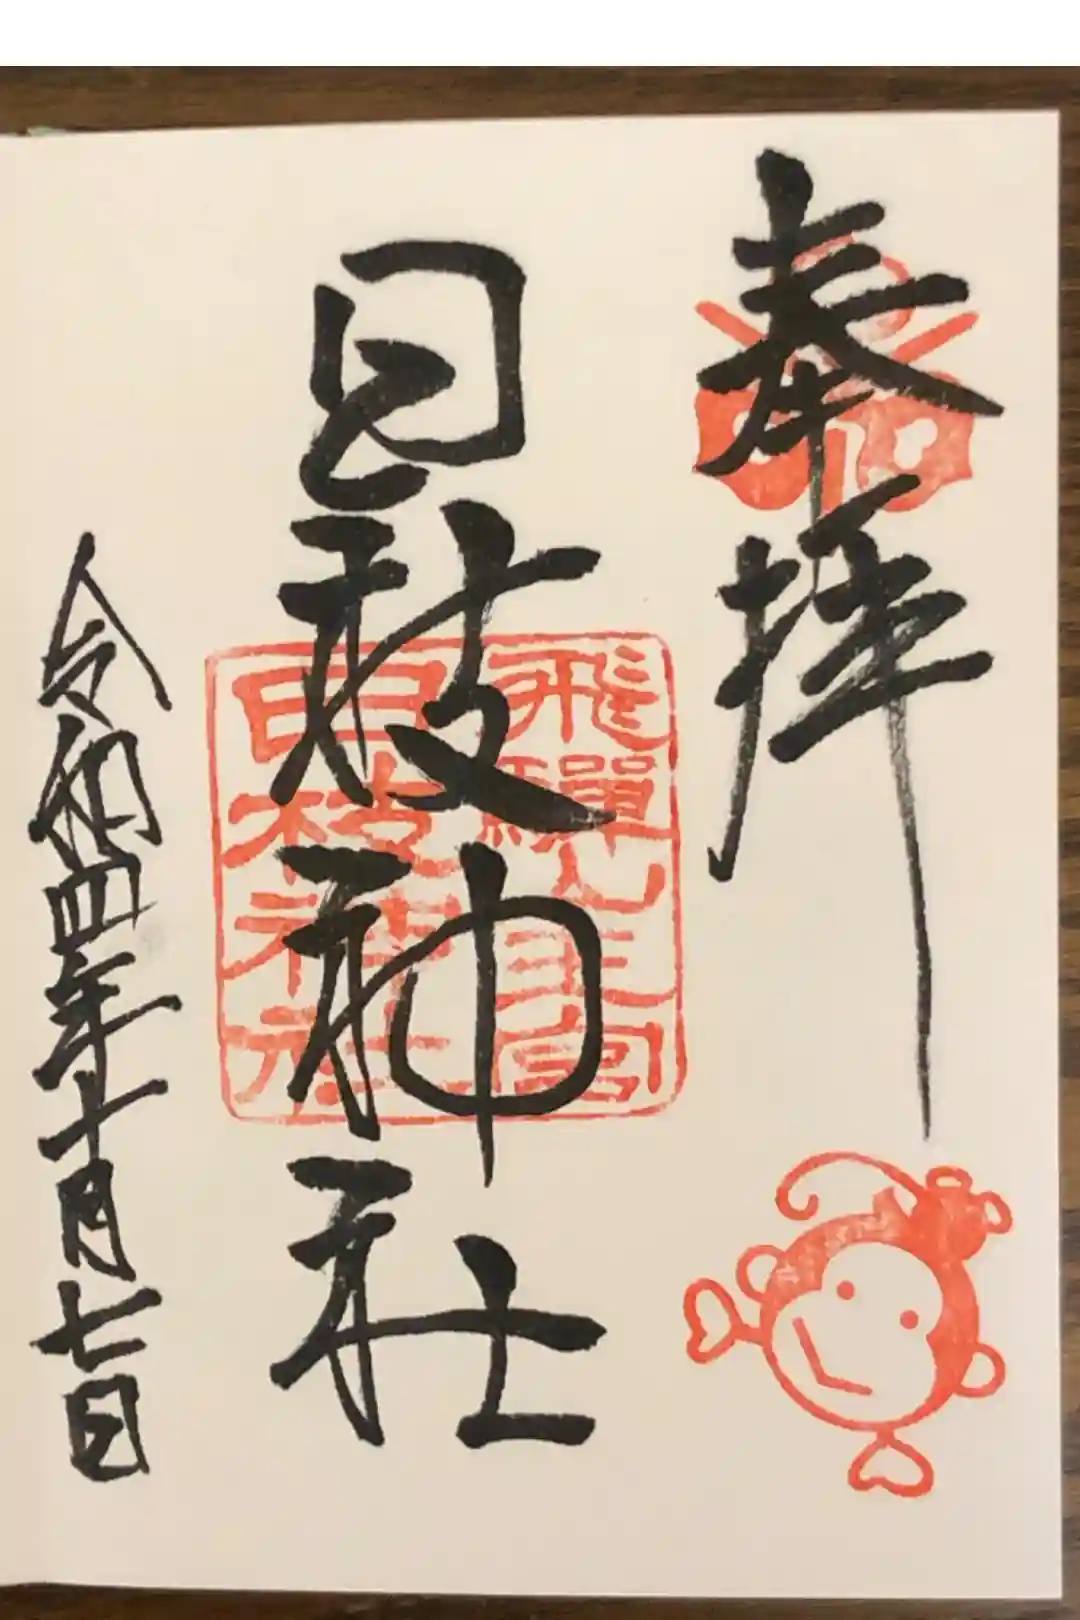 奉拝
日枝神社
飛驒山王宮
日枝神社
令和四年十月七日